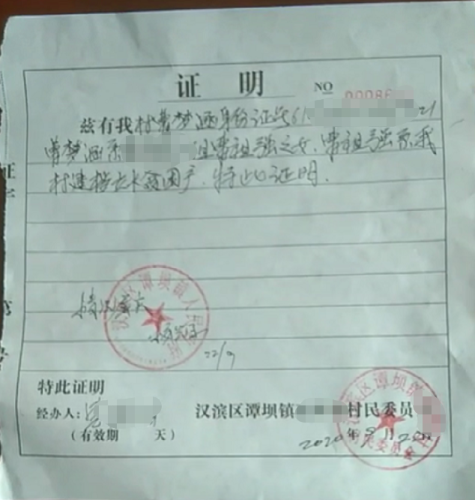 证 明
NO 0008
兹有我村曾梦涵身份证号61 21
曾梦涵系 组曾祖强之女，曾祖强系我
村建档立卡贫困户，特此证明。
情况属实
汉滨区谭坝镇人民政府
22/9
特此证明
经办人：
汉滨区谭坝镇 村民委员
(有效期 天)
2020年9月 日